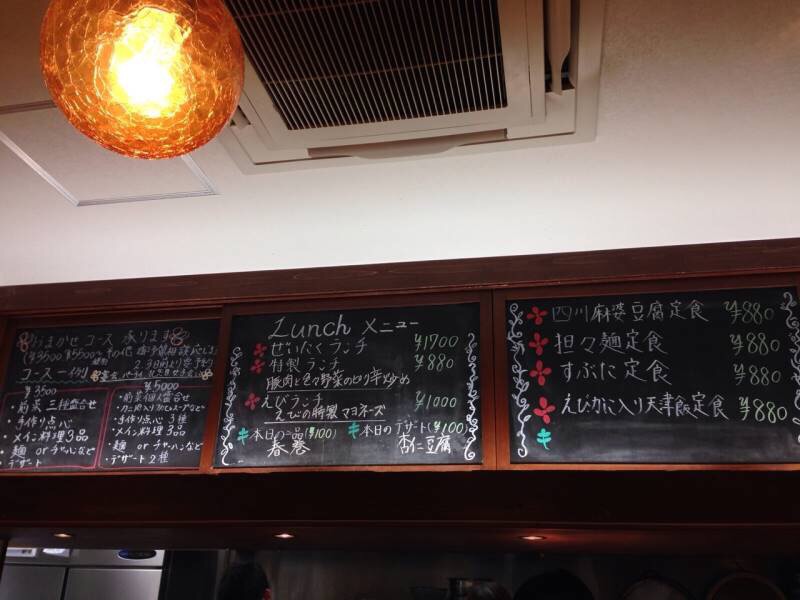 おまかせコース 承ります
(¥3500 ¥5500 その他
コース一例
¥3500
・前菜三種盛合せ
・手作り点心
・メイン料理3品
・麺 orチャーハンなど
・デザート
¥5000
・手作り点心 3種
・メイン料理 3品
・麺 orチャーハンなど
・デザート 2種
Lunch メニュー
ぜいたくランチ ¥1700
特製 ランチ ¥880
豚肉と色々野菜のピリ辛炒め
えびランチ ¥1000
えびの特製マヨネーズ
本日の一品(¥100) 本日のデザート(¥100)
春巻 杏仁豆腐
四川麻婆豆腐定食 ¥880
担々麺定食 ¥880
すぶた定食 ¥880
えびかに入り天津飯定食 ¥880